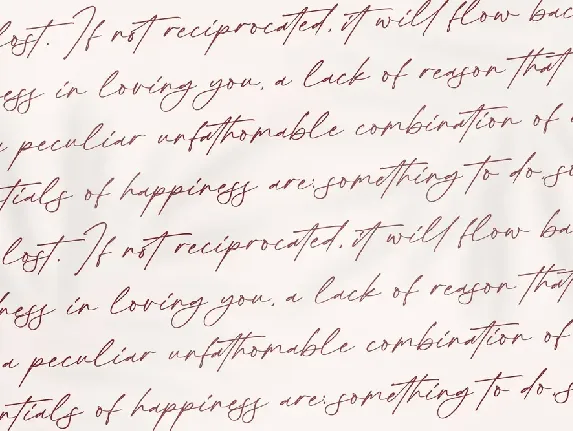 lost. If not reciprocated, it will flow bac
ess in loving you, a lack of reason that
a peculiar unfathomable combination of
tials of happiness are: something to do, so
lost. If not reciprocated, it will flow ba
ness in loving you, a lack of reason that
a peculiar unfathomable combination of
ntials of happiness are: something to do, s